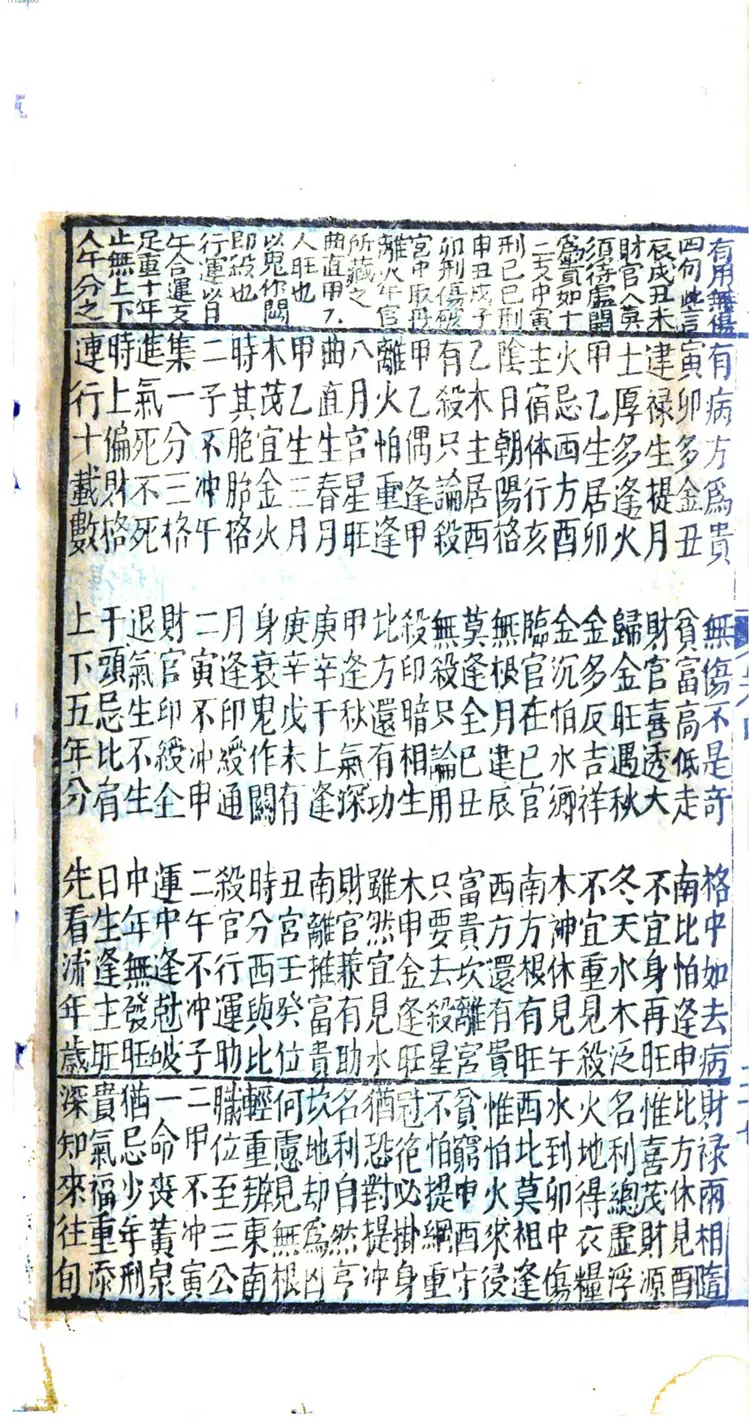 有用無傷
四句此言
辰戌丑未
財官八英
須待處開
為貴如十
二支中寅
刑巳巳刑
申丑戌子
卯刑傷破
宮中取丹
離火午官
所藏之
曲直甲乙
人旺也
以鬼作關
即殺也
行運以日
午合運支
足重十年
止無上下
人午分之
有病方為貴 無傷不是奇 格中如去病 財祿兩相隨
寅卯多金丑 貧富高低走 南北怕逢申 北方休見酉
建祿生提月 財官喜透大 不宜身再旺 惟喜茂財源
土厚多逢火 歸金旺遇秋 冬天水木泛 名利總虛浮
甲乙生居卯 金多反吉祥 不宜重見殺 火地得衣糧
火忌西方酉 金沉怕水鄉 木神休見午 水到卯中傷
主宿体行亥 臨官在巳官 南方根有旺 西北莫相逢
陰日朝陽格 無根月建辰 西方還有貴 惟怕火來侵
乙木主居酉 莫逢全巳丑 富貴坎離宮 貧窮申酉守
有殺只論殺 無殺只論用 只要去殺星 不怕提綱重
甲乙偶逢甲 殺印暗相生 木申金逢旺 冠袍必掛身
離火怕重逢 北方還有功 雖然宜見水 猶恐對提冲
八月官星旺 甲逢秋氣深 財官兼有助 名利自然亨
曲直生春月 庚辛干上逢 南離推富貴 坎地却為凶
甲乙生三月 庚辛戊未有 丑宮壬癸位 何慮見無根
木茂宜金火 身衰鬼作關 時分西與北 輕重辨東南
時其胞胎格 月逢印綬通 殺官行運助 職位至三公
二子不冲午 二寅不冲申 二午不冲子 二甲不冲寅
集一分三格 財官印綬全 運中逢剋破 一命喪黃泉
進氣死不死 退氣生不生 中年無發旺 猶忌少年刑
時上偏財格 干頭忌比肩 日生逢主旺 貴氣福重添
連行十載數 上下五年分 先看流年歲 深知來往旬